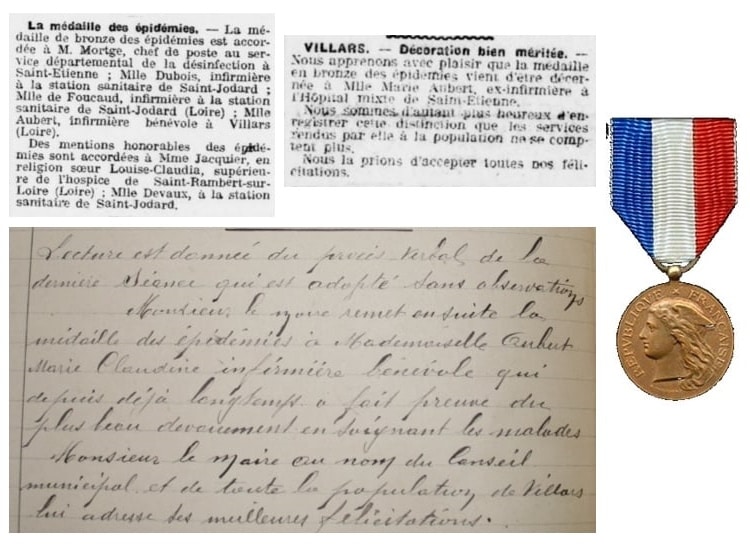 La médaille des épidémies. — La mé-
daille de bronze des épidémies est accor-
dée à M. Mortge, chef de poste au ser-
vice départemental de la désinfection à
Saint-Etienne ; Mlle Dubois, infirmière
à la station sanitaire de Saint-Jodard ;
Mlle de Foucaud, infirmière à la station
sanitaire de Saint-Jodard (Loire) ; Mlle
Aubert, infirmière bénévole à Villars
(Loire).
Des mentions honorables des épidé-
mies sont accordées à Mme Jacquier, en
religion sœur Louise-Claudia, supérieu-
re de l'hospice de Saint-Rambert-sur-
Loire (Loire) ; Mlle Devaux, à la station
sanitaire de Saint-Jodard.
VILLARS. — Décoration bien méritée. —
Nous apprenons avec plaisir que la médaille
en bronze des épidémies vient d'être décer-
née à Mlle Marie Aubert, ex-infirmière à
l'Hôpital mixte de Saint-Etienne.
Nous sommes d'autant plus heureux d'en-
registrer cette distinction que les services
rendus par elle à la population ne se comp-
tent plus.
Nous la prions d'accepter toutes nos féli-
citations.
REPUBLIQUE FRANÇAISE
Lecture est donnée du procès verbal de la
dernière séance qui est adopté sans observations
Monsieur le maire remet ensuite la
médaille des épidémies à Mademoiselle Aubert
Marie Claudine infirmière bénévole qui
depuis déjà longtemps a fait preuve du
plus beau dévouement en soignant les malades
Monsieur le Maire au nom du Conseil
municipal et de toute la population de Villars
lui adresse ses meilleures félicitations.